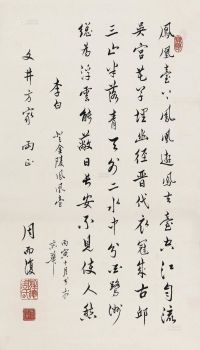 鳳凰臺上鳳凰遊鳳去臺空江自流
吳宮花草埋幽徑晉代衣冠成古邱
三山半落青天外二水中分白鷺洲
總為浮雲能蔽日長安不見使人愁
李白 登金陵鳳凰臺
丙寅十月
京華
文井方家 正
周而復